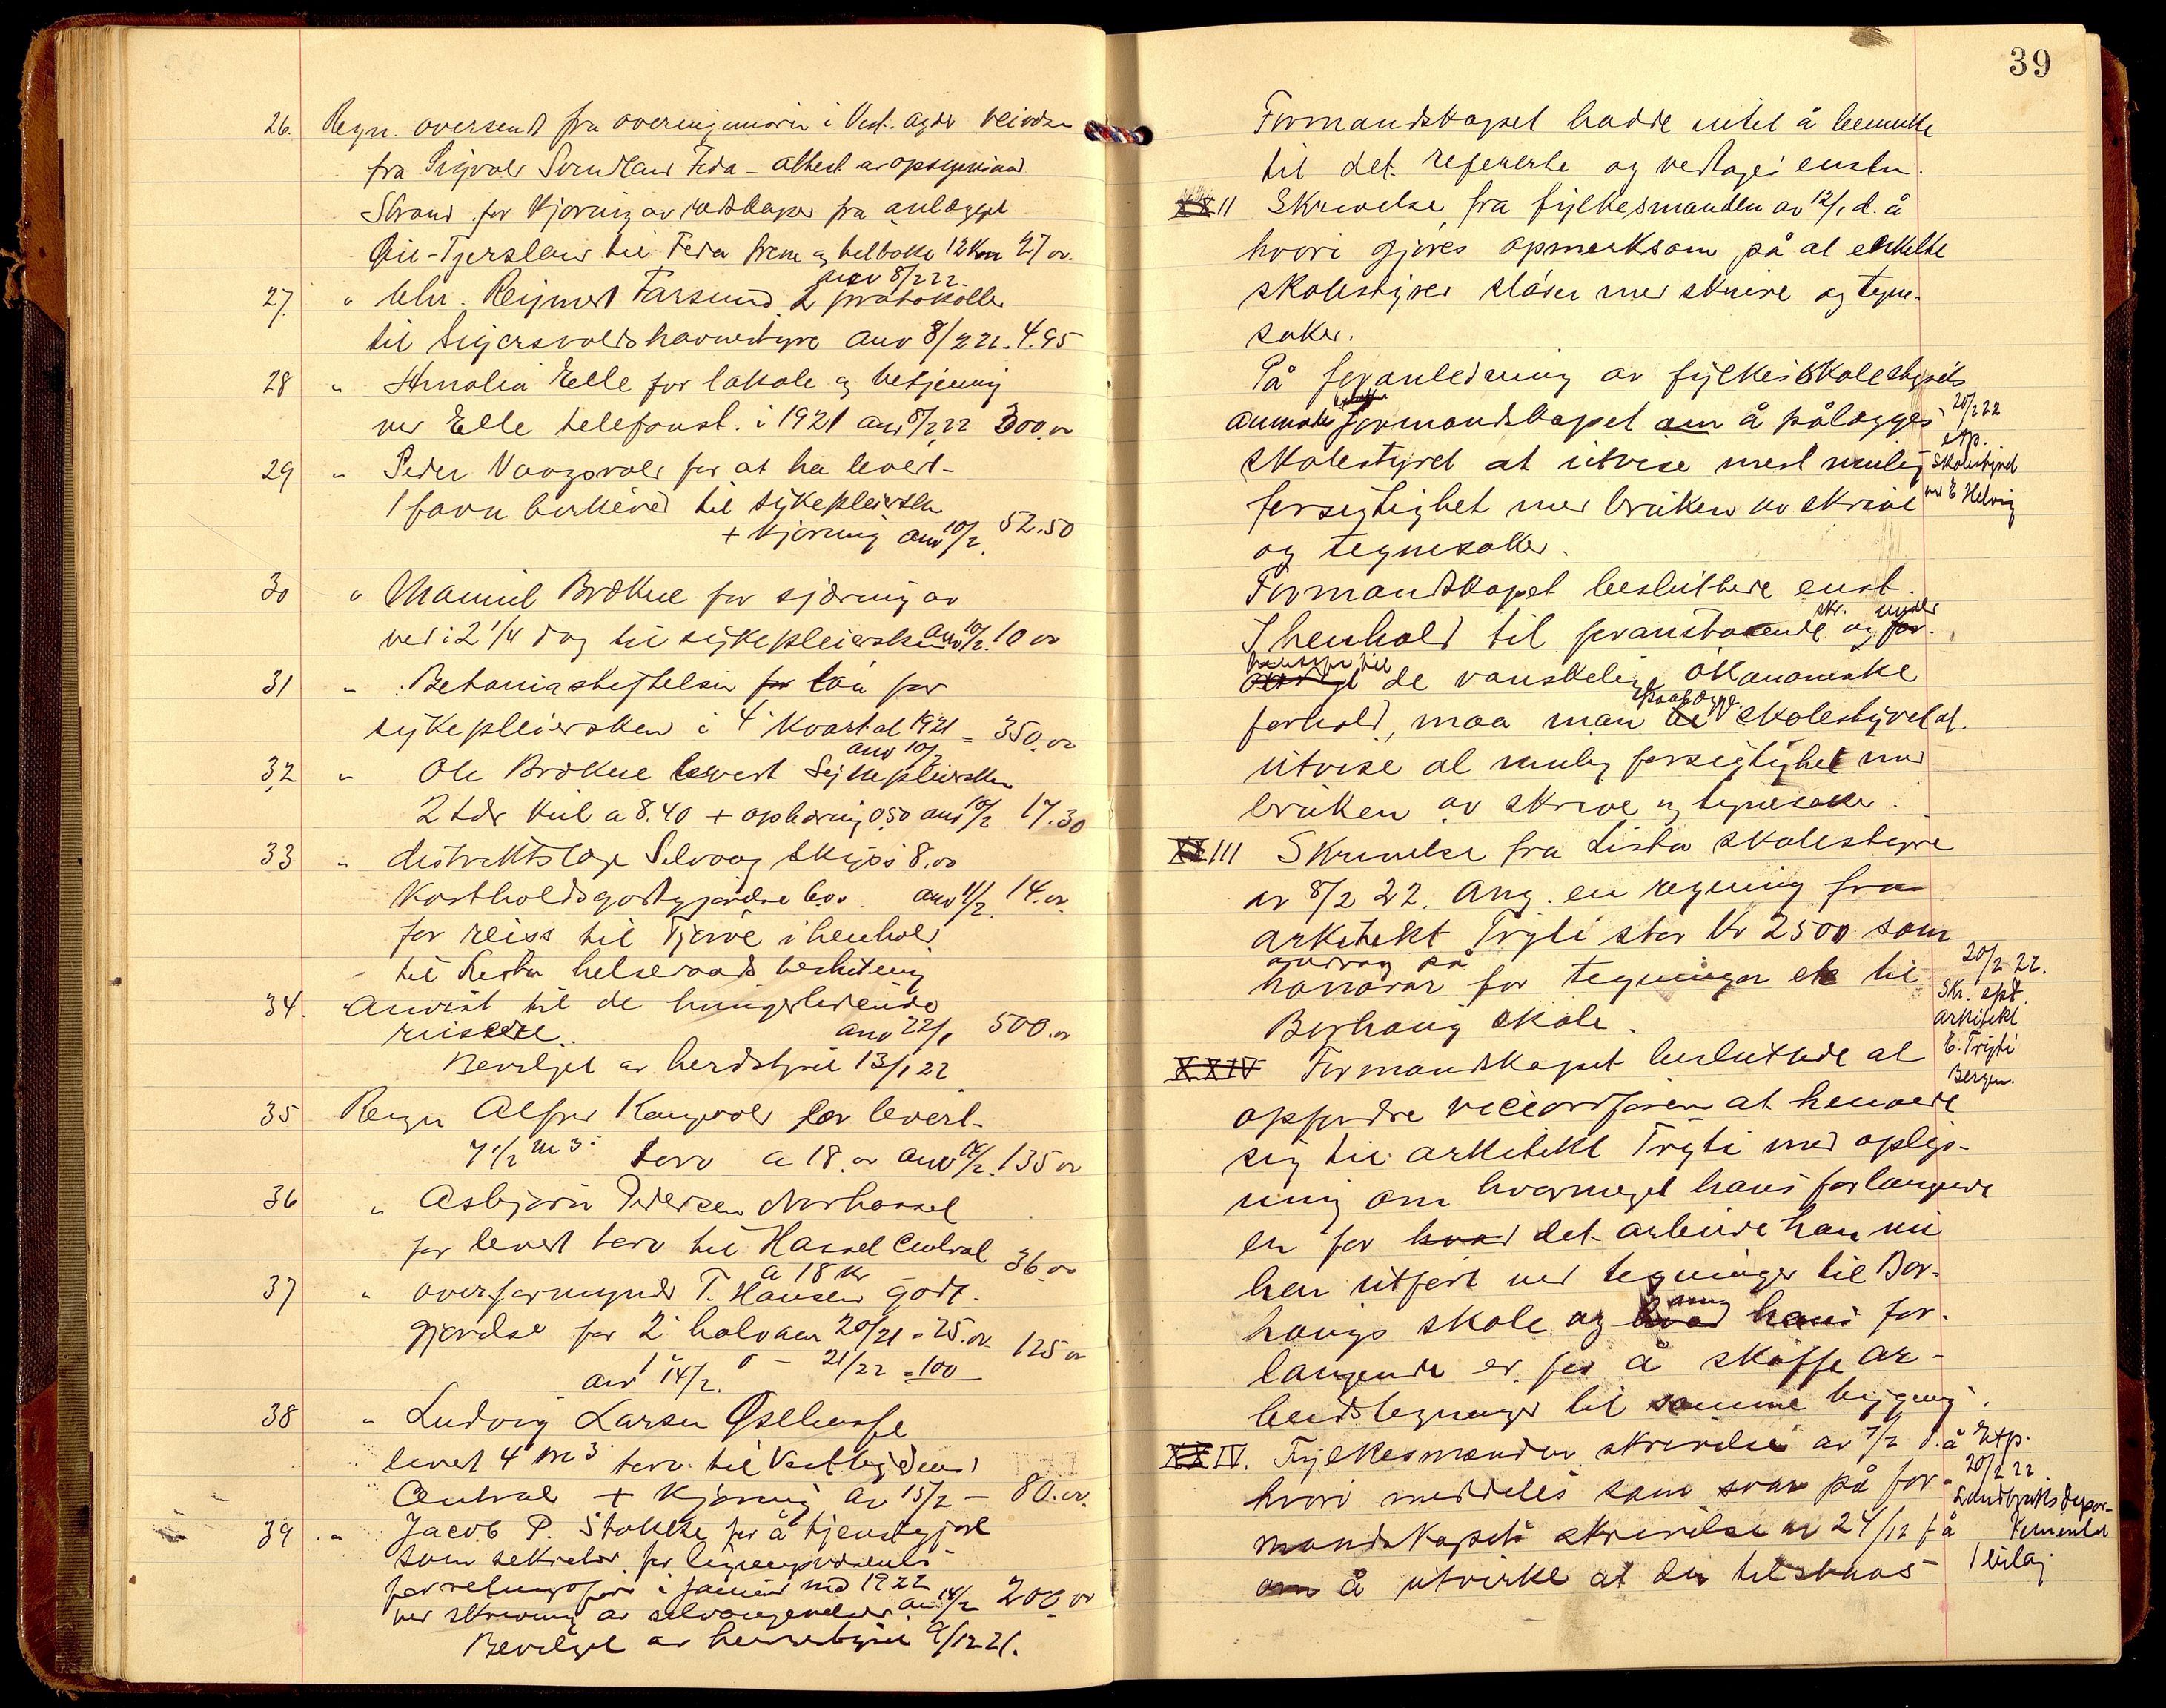 26. Regn. oversendt fra overingeniøren i Vest-Agder veivæsen
fra Sigvald Svendsen Feda - attest av opsynsmand
Strand for kjøring av redskaper fra anlægget
til Feda frem og tilbake 12 km 27 00
anv 8/2 22
27. " Chr. Reymert Farsund 2 protokoller
til Sigersvolds havnestyre anv 8/2 22. 4.95
28 " Amalia Elle for lokale og betjening
ved Elle telefonst. i 1921 anv 8/2 22 300.00
29 " Peder Vaagsvold for at ha levert
1 favn birkeved til sykepleiersken
+ kjøring anv 10/2. 52.50
30 " Brekne for skjæring av
ved i 2 1/4 dag til sykepleiersken anv 10/2. 10 00
31 " Betaniastiftelsen for løn for
sykepleiersken i 4 kvartal 1921 = 350.00
anv 10/2
32 " Ole Brekne levert Sykepleiersken
2 tdr kul a 8.40 + opbæring 0.50 anv 10/2 17.30
33 " distriktslæge Selvaag skyss 8.00
Kostholdsgodtgjørelse 6.00. anv 11/2. 14.00
for reise til Tjørve i henhold
til Lista helseraads beslutning
34. Anvist til de hungerlidende
russere. anv 22/1 500.00
Bevilget av herdstyret 13/1 22
35 Regn Alfred Kangvold for levert
7 1/2 m3 torv a 18.00 anv 14/2. 135 00
36 " Asbjørn Pedersen Norhassel
for levert torv til Hassel Central 36.00
a 18 kr
37 " overformynder T. Hansen godt-
gjørelse for 2 halvaar 20/21 = 25.00 125 00
1 " - 21/22 = 100
anv 14/2.
38 " Ludvig Larsen Østhassel
levert 4 m3 torv til Vestbygdens
Central + kjøring av 15/2 - 80.00.
39. " Jacob P. Stokke for å tjenstgjøre
som sekretær for ligningsvæsenets
forretningsfører i januar md 1922
ved skrivning av selvangivelser anv 14/2 200 00
Bevilget av herredstyret 9/12 21.
39
Formandskapet hadde intet å bemerke
til det refererte og vedtages enstn.
XXII Skrivelse fra fylkesmanden av 12/1 d.å
hvori gjøres opmerksom på at enkelte
skolestyrer sløser med skrive og tegne-
saker.
På foranledning av fylkesskolestyrets
anmoder formandskapet om å pålægges 20/2 22
skolestyret at utvise mest mulig
etp. Skolestyret
forsigtighet med bruken av skrive
ved E Helvig
og tegnesaker.
Formandskapet besluttede enst.
skr. under
I henhold til foranstaaende og for-
hensyn til
de vanskelige økonomiske
paalægge
forhold, maa man skolestyret at
utvise al mulig forsigtighet med
bruken av skrive og tegnesaker.
XXIII Skrivelse fra Lista skolestyre
av 8/2 22. Ang. en regning fra
arkitekt Tryti stor kr 2500 som
avdrag på
honorar for tegninger etc til
20/2 22.
Skr. eptr.
arkitekt
E. Tryti
Bergen.
Borhaug skole.
XXIV Formandskapet besluttede at
opfordre viceordføren at henvende
sig til arkitekt Tryti med oplys-
ning om hvormeget hans forlangende
er for hvad det arbeide han nu
har utført ved tegninger til Bor-
haugs skole og hvad hans for-
langende er for å skaffe ar-
beidstegninger til samme bygning.
XXIV. Fylkesmanden skrivelse av 7/2 d.å
Etp.
20/2 22.
Landbruksdepar-
tementet
1 bilag
hvori meddeles som svar på for-
mandskapets skrivelse av 24/12 få
om å utvirke at der tilstaaes